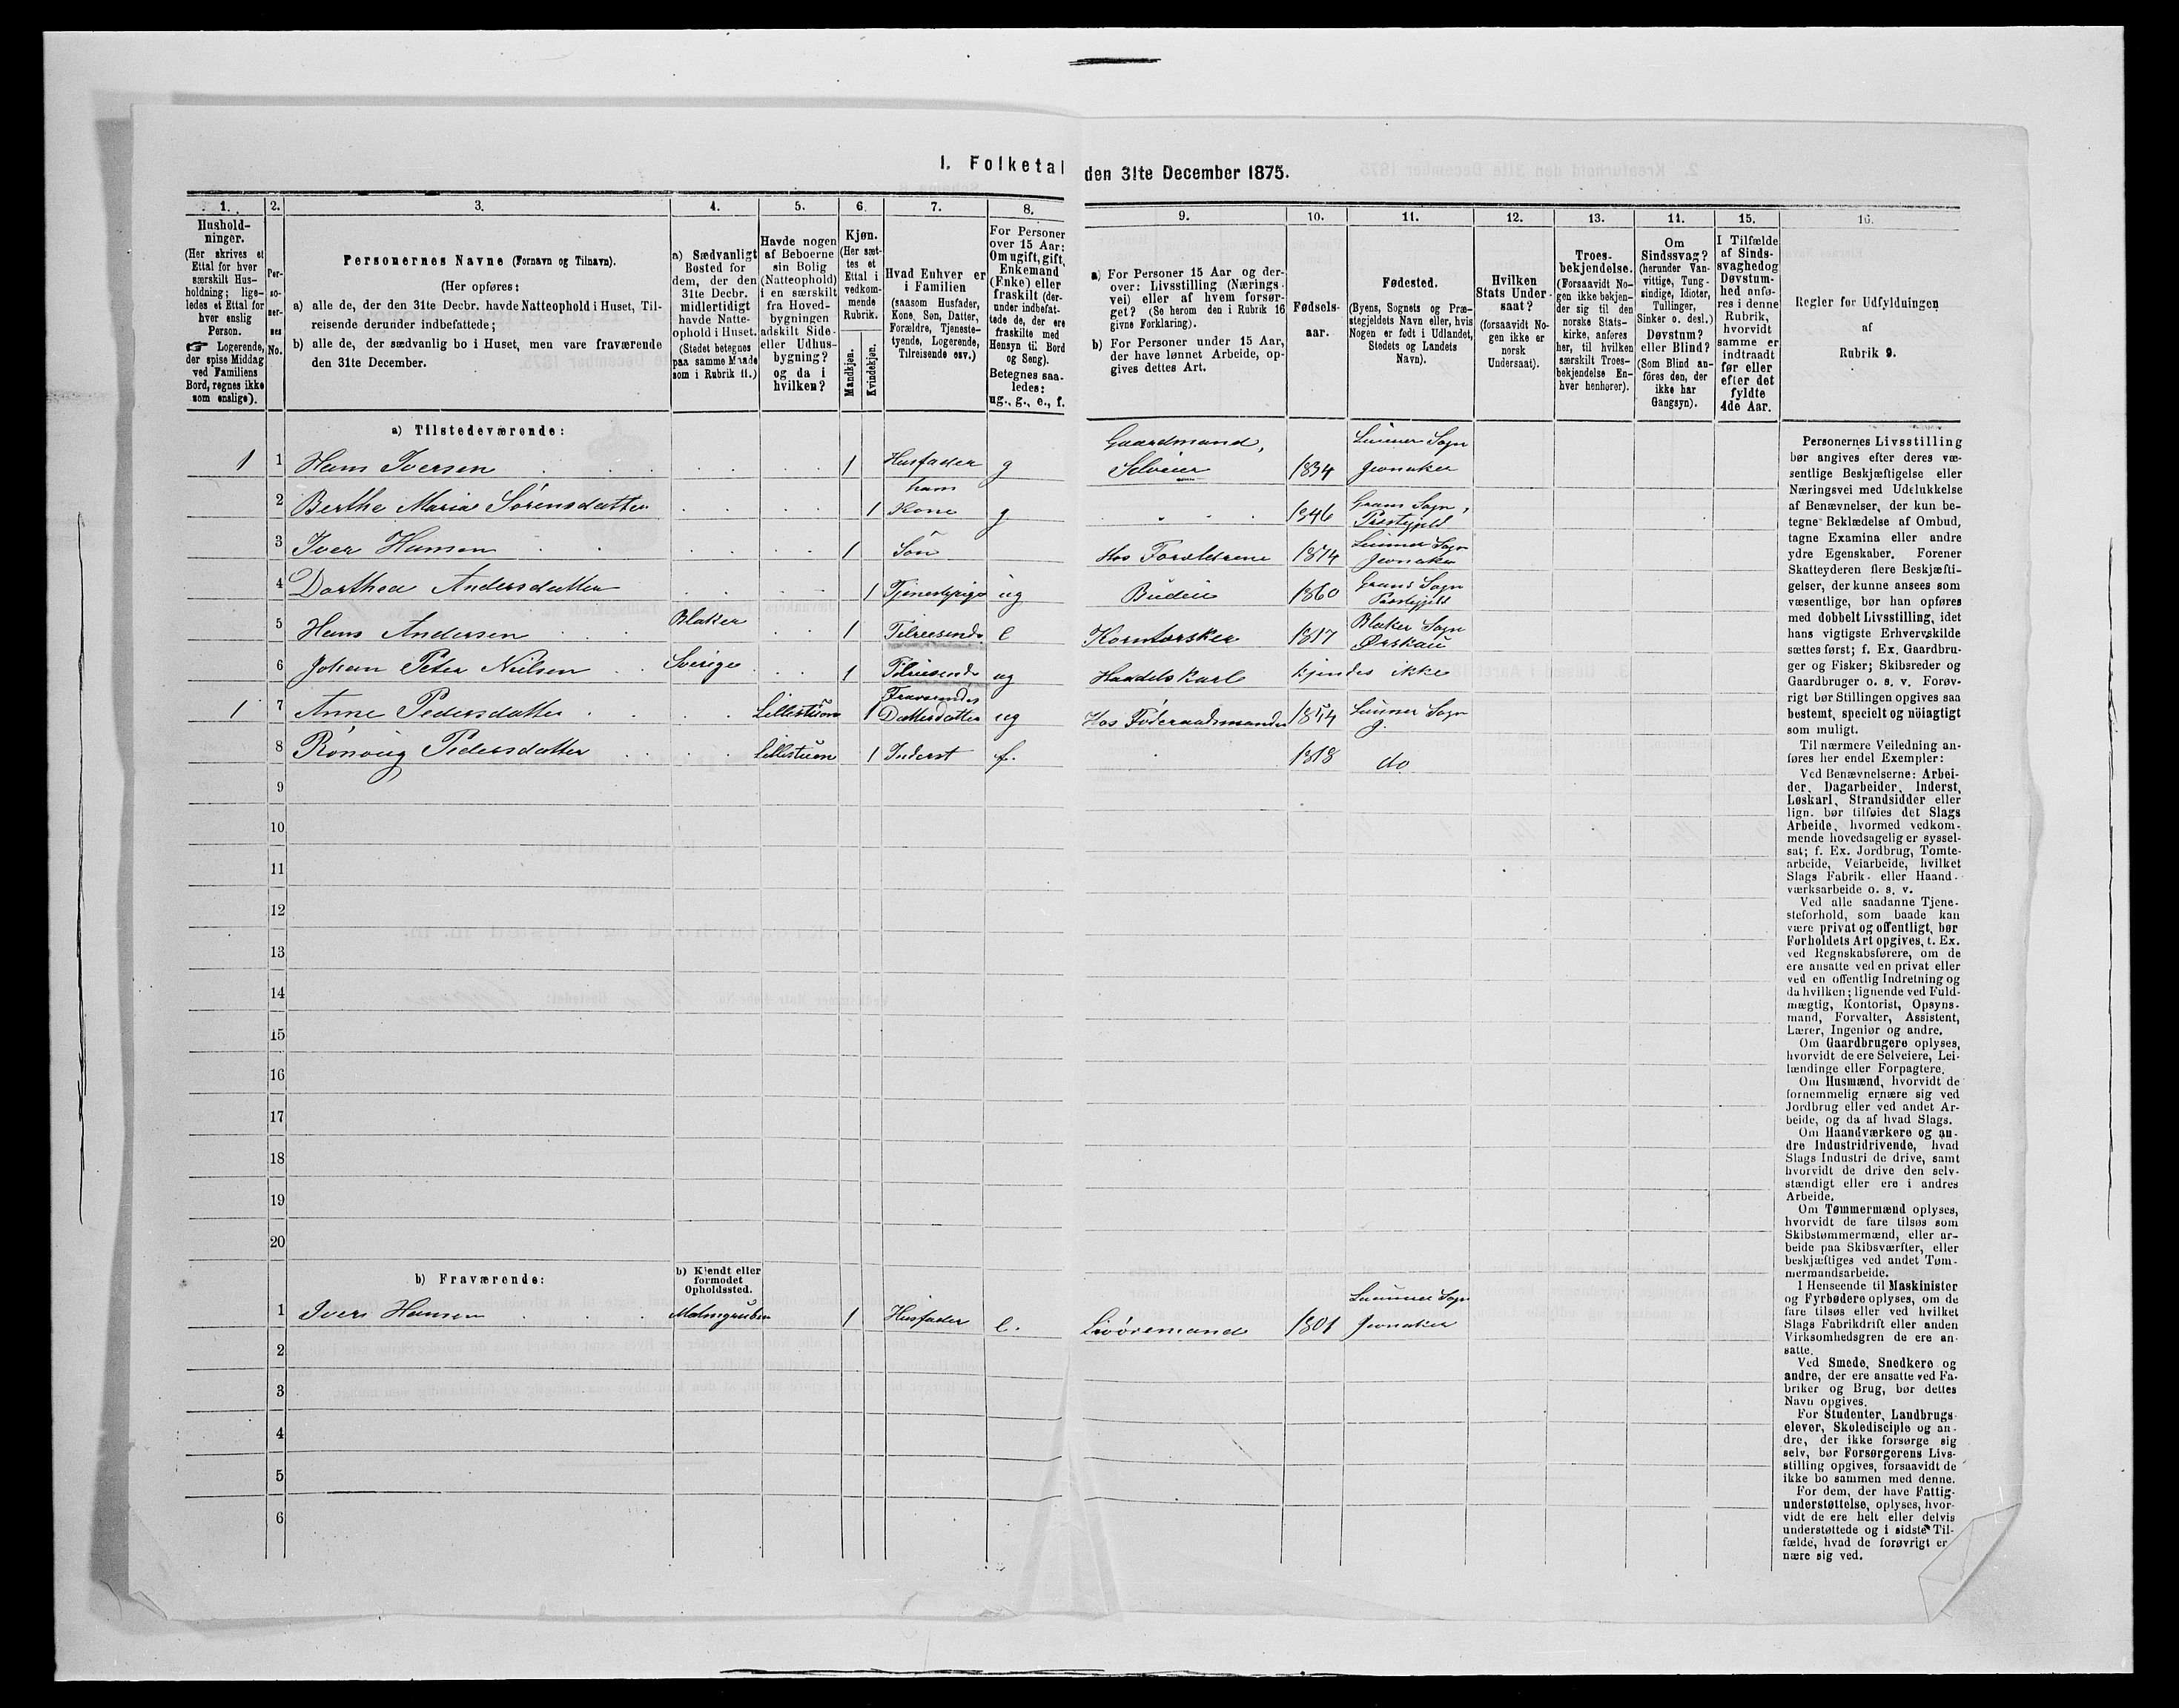 I. Folketal den 31te December 1875.
1.
Hushold-
ninger.
(Her skrives et
Ettal for hver
særskilt Hus-
holdning; lige-
ledes et Ettal for
hver enslig
Person.
☞ Logerende,
der spise Middag
ved Familiens
Bord, regnes ikke
som enslige).
2.
Per-
so-
ner-
nes
No.
3.
Personernes Navne (Fornavn og Tilnavn).
(Her opføres:
a) alle de, der den 31te Decbr. havde Natteophold i Huset, Til-
reisende derunder indbefattede;
b) alle de, der sædvanlig bo i Huset, men vare fraværende
den 31te December.
4.
a) Sædvanligt
Bosted for
dem, der den
31te Decbr.
midlertidigt
havde Natte-
ophold i Huset.
(Stedet betegnes
paa samme Maade
som i Rubrik 11.)
5.
Havde nogen
af Beboerne
sin Bolig
(Natteophold)
i en særskilt
fra Hoved-
bygningen
adskilt Side-
eller Udhus-
bygning?
og da i
hvilken?
6.
Kjøn.
(Her sæt-
tes et
Ettal i
vedkom-
mende
Rubrik.
Mandkjøn.
Kvindekjøn.
7.
Hvad Enhver er
i Familien
(saasom Husfader,
Kone, Søn, Datter,
Forældre, Tjeneste-
tyende, Logerende,
Tilreisende osv.)
8.
For Personer
over 15 Aar:
Om ugift, gift,
Enkemand
(Enke) eller
fraskilt (der-
under indbefat-
tede de, der ere
fraskilte med
Hensyn til Bord
og Seng).
Betegnes saa-
ledes:
ug., g., e., f.
9.
a) For Personer 15 Aar og der-
over: Livsstilling (Nærings-
vei) eller af hvem forsør-
get? (Se herom den i Rubrik 16
givne Forklaring).
b) For Personer under 15 Aar,
der have lønnet Arbeide, op-
gives dettes Art.
10.
Fødsels-
aar.
11.
Fødested.
(Byens, Sognets og Præ-
stegjeldets Navn eller, hvis
Nogen er født i Udlandet,
Stedets og Landets
Navn).
12.
Hvilken
Stats Under-
saat?
(forsaavidt No-
gen ikke er
norsk
Undersaat).
13.
Troes-
bekjendelse.
(Forsaavidt No-
gen ikke bekjen-
der sig til den
norske Stats-
kirke, anføres
her, til hvilken
særskilt Troes-
bekjendelse En-
hver henhører).
14.
Om
Sindssvag?
(herunder Van-
vittige, Tung-
sindige, Idioter,
Tullinger,
Sinker o. desl.)
Døvstum?
eller Blind?
(Som Blind an-
føres den, der
ikke har
Gangsyn).
15.
I Tilfælde
af Sinds-
svaghed og
Døvstum-
hed anfø-
res i denne
Rubrik,
hvorvidt
samme er
indtraadt
før eller
efter det
fyldte
4de Aar.
16.
Regler for Udfyldningen
af
Rubrik 9.
a) Tilstedeværende:
1 1 Hans Iversen 1 Husfader g Gaardmand, Selveier 1834 Lunner Sogn Jevnaker
2 Berthe Maria Sörensdatter 1 hans Kone g 1846 Grans Sogn, Præstgjeld
3 Iver Hansen 1 Sön Hos Forældrene 1874 Lunner Sogn Jevnaker
4 Dorthea Andersdatter 1 Tjenestepige ug Budeie 1860 Grans Sogn Præstgjeld
5 Hans Andersen Blaker 1 Tilreisende e Korntærsker 1817 Blaker Sogn Ørskau
6 Johan Peter Nielsen Sverige 1 Tilreisende ug Handelskarl kjendes ikke
1 7 Anne Pedersdatter Lillestuen 1 Datterdatter ug Hos Föderaadsmanden 1854 Lunner Sogn J.
8 Rönnoug Pedersdatter Lillestuen 1 Inderst f. 1818 do
9
10
11
12
13
14
15
16
17
18
19
20
b) Fraværende:
b) Kjendt eller
formodet
Opholdssted.
1 Iver Hansen Malmgruben 1 Husfader e. Livöremand 1801 Lunner Sogn Jevnaker
2
3
4
5
6
Personernes Livsstilling
bør angives efter deres væ-
sentlige Beskjæftigelse eller
Næringsvei med Udelukkelse
af Benævnelser, der kun be-
tegne Beklædelse af Ombud,
tagne Examina eller andre
ydre Egenskaber. Forener
Skatteyderen flere Beskjæfti-
gelser, der kunne ansees som
væsentlige, bør han opføres
med dobbelt Livsstilling, idet
hans vigtigste Erhvervskilde
sættes først; f. Ex. Gaardbru-
ger og Fisker; Skibsreder og
Gaardbruger o. s. v. Forøv-
rigt bør Stillingen opgives saa
bestemt, specielt og nöiagtigt
som muligt.
Til nærmere Veiledning an-
føres her endel Exempler:
Ved Benævnelserne: Arbei-
der, Dagarbeider, Inderst,
Løskarl, Strandsidder eller
lign. bør tilføies det Slags
Arbeide, hvormed vedkom-
mende hovedsagelig er syssel-
sat; f. Ex. Jordbrug, Tomte-
arbeide, Veiarbeide, hvilket
Slags Fabrik- eller Haand-
værksarbeide o. s. v.
Ved alle saadanne Tjene-
steforhold, som baade kan
være privat og offentligt, bør
Forholdets Art opgives, t. Ex.
ved Regnskabsførere, om de
ere ansatte ved en privat eller
ved en offentlig Indretning og
da hvilken; lignende ved Fuld-
mægtig, Kontorist, Opsyns-
mand, Forvalter, Assistent,
Lærer, Ingeniør og andre.
Om Gaardbrugere oplyses,
hvorvidt de ere Selveiere, Lei-
lændinge eller Forpagtere.
Om Husmænd, hvorvidt de
fornemmelig ernære sig ved
Jordbrug eller ved andet Ar-
beide, og da af hvad Slags.
Om Haandværkere og an-
dre Industridrivende, hvad
Slags Industri de drive, samt
hvorvidt de drive den selv-
stændigt eller ere i andres
Arbeide.
Om Tømmermænd oplyses,
hvorvidt de fare tilsøs som
Skibstømmermænd, eller ar-
beide paa Skibsværfter, eller
beskjæftiges ved andet Tøm-
mermandsarbeide.
I Henseende til Maskinister
og Fyrbødere oplyses, om de
fare tilsøs eller ved hvilket
Slags Fabrikdrift eller anden
Virksomhedsgren de ere an-
satte.
Ved Smede, Snedkere og
andre, der ere ansatte ved Fa-
briker og Brug, bør dettes
Navn opgives.
For Studenter, Landbrugs-
elever, Skoledisciple og an-
dre, der ikke forsørge sig
selv, bør Forsørgerens Livs-
stilling opgives, forsaavidt de
ikke bo sammen med denne.
For dem, der have Fattig-
understøttelse, oplyses, hvor-
vidt de ere helt eller delvis
understøttede og i sidste Til-
fælde, hvad de forøvrigt er-
nære sig ved.